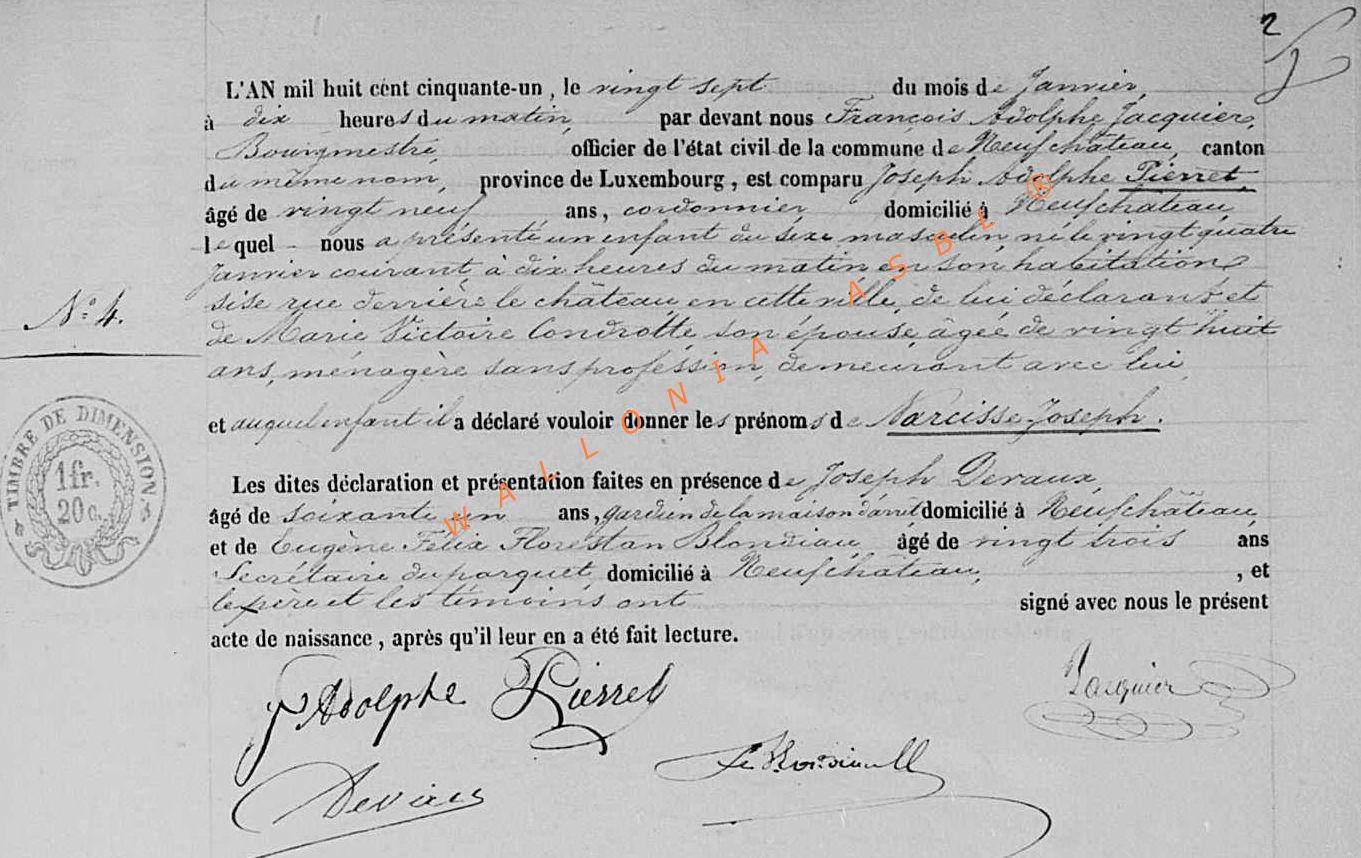 2
L'AN mil huit cent cinquante-un, le vingt sept du mois de Janvier,
à dix heures du matin, par devant nous François Adolphe Jacquier,
Bourgmestre, officier de l'état civil de la commune de Neufchâteau, canton
du même nom, province de Luxembourg, est comparu Joseph Adolphe Pierret
âgé de vingt neuf ans, cordonnier domicilié à Neufchateau,
lequel nous a présenté un enfant du sexe masculin né le vingt quatre
Janvier courant à dix heures du matin en son habitation
sise rue derrière le château, en cette ville, de lui déclarant et
N.º 4.
de Marie Victoire Condrotte son épouse, âgée de vingt huit
ans, ménagère sans profession, demeurant avec lui
et auquel enfant il a déclaré vouloir donner les prénoms de Narcisse Joseph.
TIMBRE DE DIMENSION
1 fr.
20 c.
Les dites déclaration et présentation faites en présence de Joseph Devaux,
âgé de soixante un ans, gardien de la maison d'arrêt domicilié à Neufchâteau,
et de Eugène Félix Florestan Blondiau, âgé de vingt trois ans
Secrétaire du parquet, domicilié à Neufchateau, , et
le père et les témoins ont signé avec nous le présent
acte de naissance, après qu'il leur en a été fait lecture.
J Adolphe Pierret
Jacquier
Devaux
WALLONIA ASBL ®